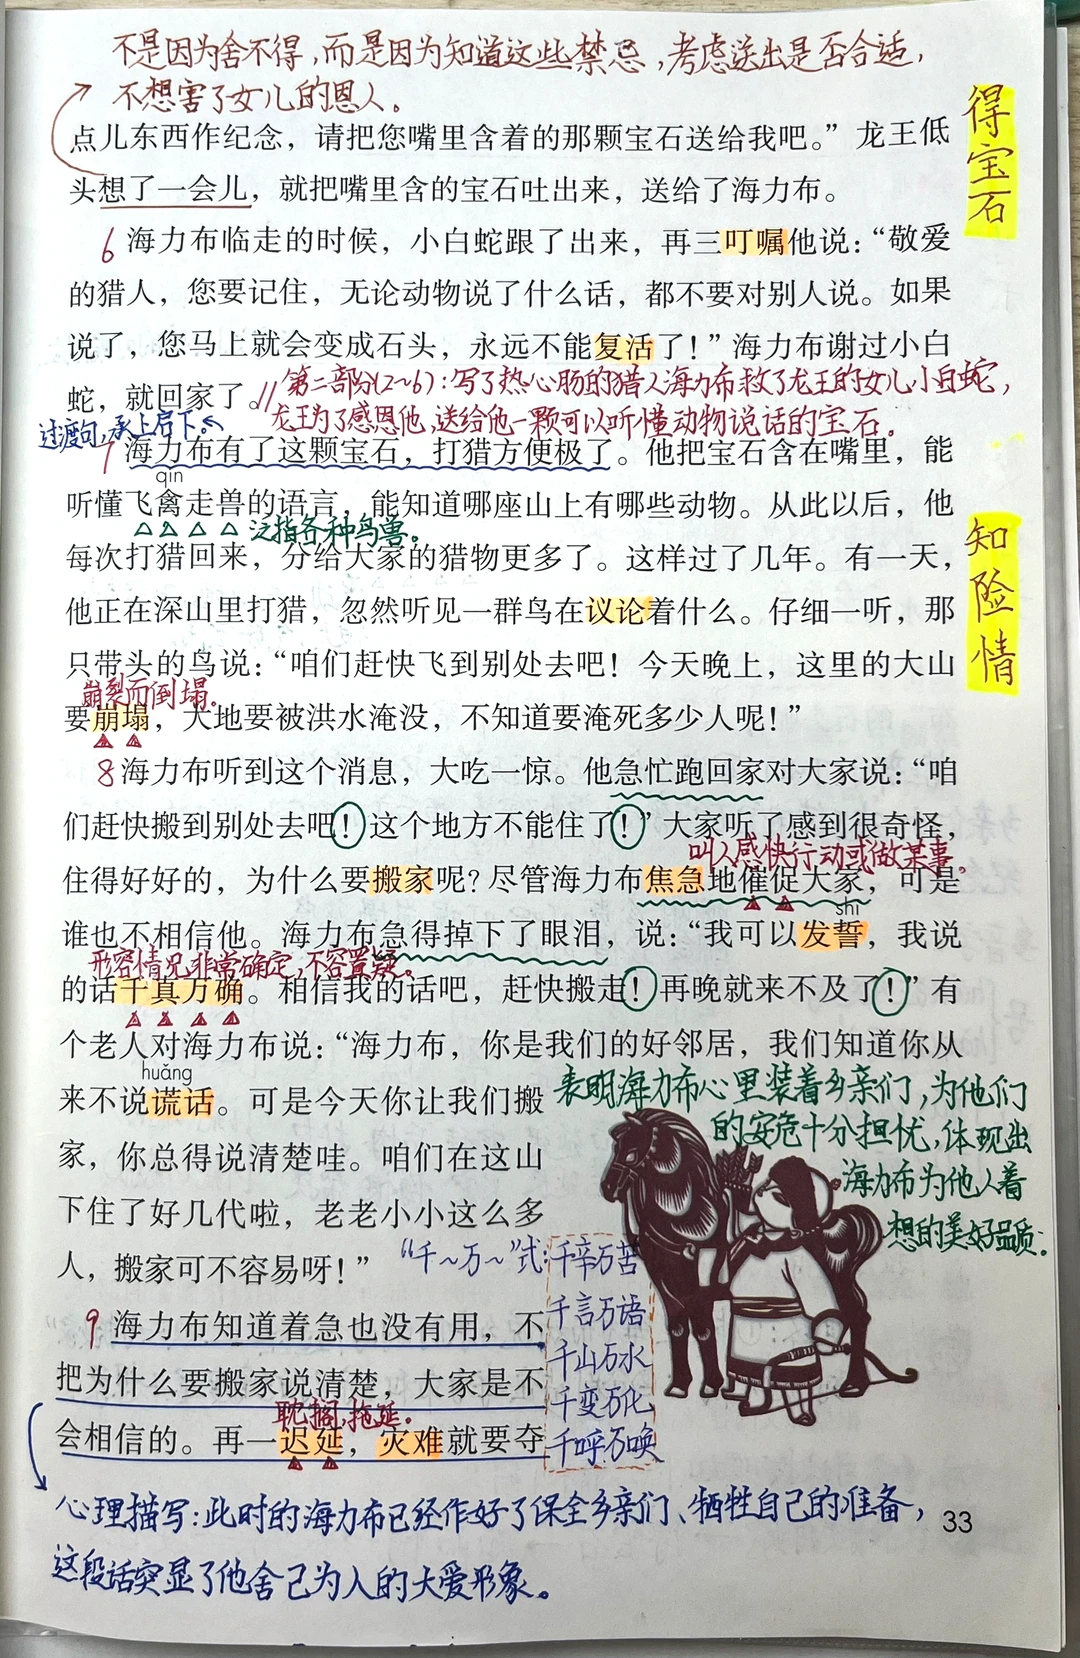 不是因为舍不得，而是因为知道这些禁忌，考虑送出是否合适，
不想害了女儿的恩人。
点儿东西作纪念，请把您嘴里含着的那颗宝石送给我吧。”龙王低
头想了一会儿，就把嘴里含的宝石吐出来，送给了海力布。
得宝石
6 海力布临走的时候，小白蛇跟了出来，再三叮嘱他说：“敬爱
的猎人，您要记住，无论动物说了什么话，都不要对别人说。如果
说了，您马上就会变成石头，永远不能复活了！”海力布谢过小白
蛇，就回家了。//
第二部分(2~6)：写了热心肠的猎人海力布救了龙王的女儿小白蛇，
龙王为了感恩他，送给他一颗可以听懂动物说话的宝石。
过渡句，承上启下。
7 海力布有了这颗宝石，打猎方便极了。他把宝石含在嘴里，能
qín
听懂飞禽走兽的语言，能知道哪座山上有哪些动物。从此以后，他
泛指各种鸟兽。
每次打猎回来，分给大家的猎物更多了。这样过了几年。有一天，
他正在深山里打猎，忽然听见一群鸟在议论着什么。仔细一听，那
只带头的鸟说：“咱们赶快飞到别处去吧！今天晚上，这里的大山
崩裂而倒塌。
要崩塌，大地要被洪水淹没，不知道要淹死多少人呢！”
知险情
8 海力布听到这个消息，大吃一惊。他急忙跑回家对大家说：“咱
们赶快搬到别处去吧！这个地方不能住了！”大家听了感到很奇怪，
叫人感快行动或做某事。
住得好好的，为什么要搬家呢？尽管海力布焦急地催促大家，可是
shì
谁也不相信他。海力布急得掉下了眼泪，说：“我可以发誓，我说
形容情况非常确定，不容置疑。
的话千真万确。相信我的话吧，赶快搬走！再晚就来不及了！”有
个老人对海力布说：“海力布，你是我们的好邻居，我们知道你从
huǎng
来不说谎话。可是今天你让我们搬
家，你总得说清楚哇。咱们在这山
下住了好几代啦，老老小小这么多
人，搬家可不容易呀！”
表明海力布心里装着乡亲们，为他们
的安危十分担忧，体现出
海力布为他人着
想的美好品质；
“千~万~”式：千辛万苦
千言万语
千山万水
千变万化
千呼万唤
9 海力布知道着急也没有用，不
把为什么要搬家说清楚，大家是不
耽搁，拖延。
会相信的。再一迟延，灾难就要夺
心理描写：此时的海力布已经作好了保全乡亲们、牺牲自己的准备，
这段话突显了他舍己为人的大爱形象。
33